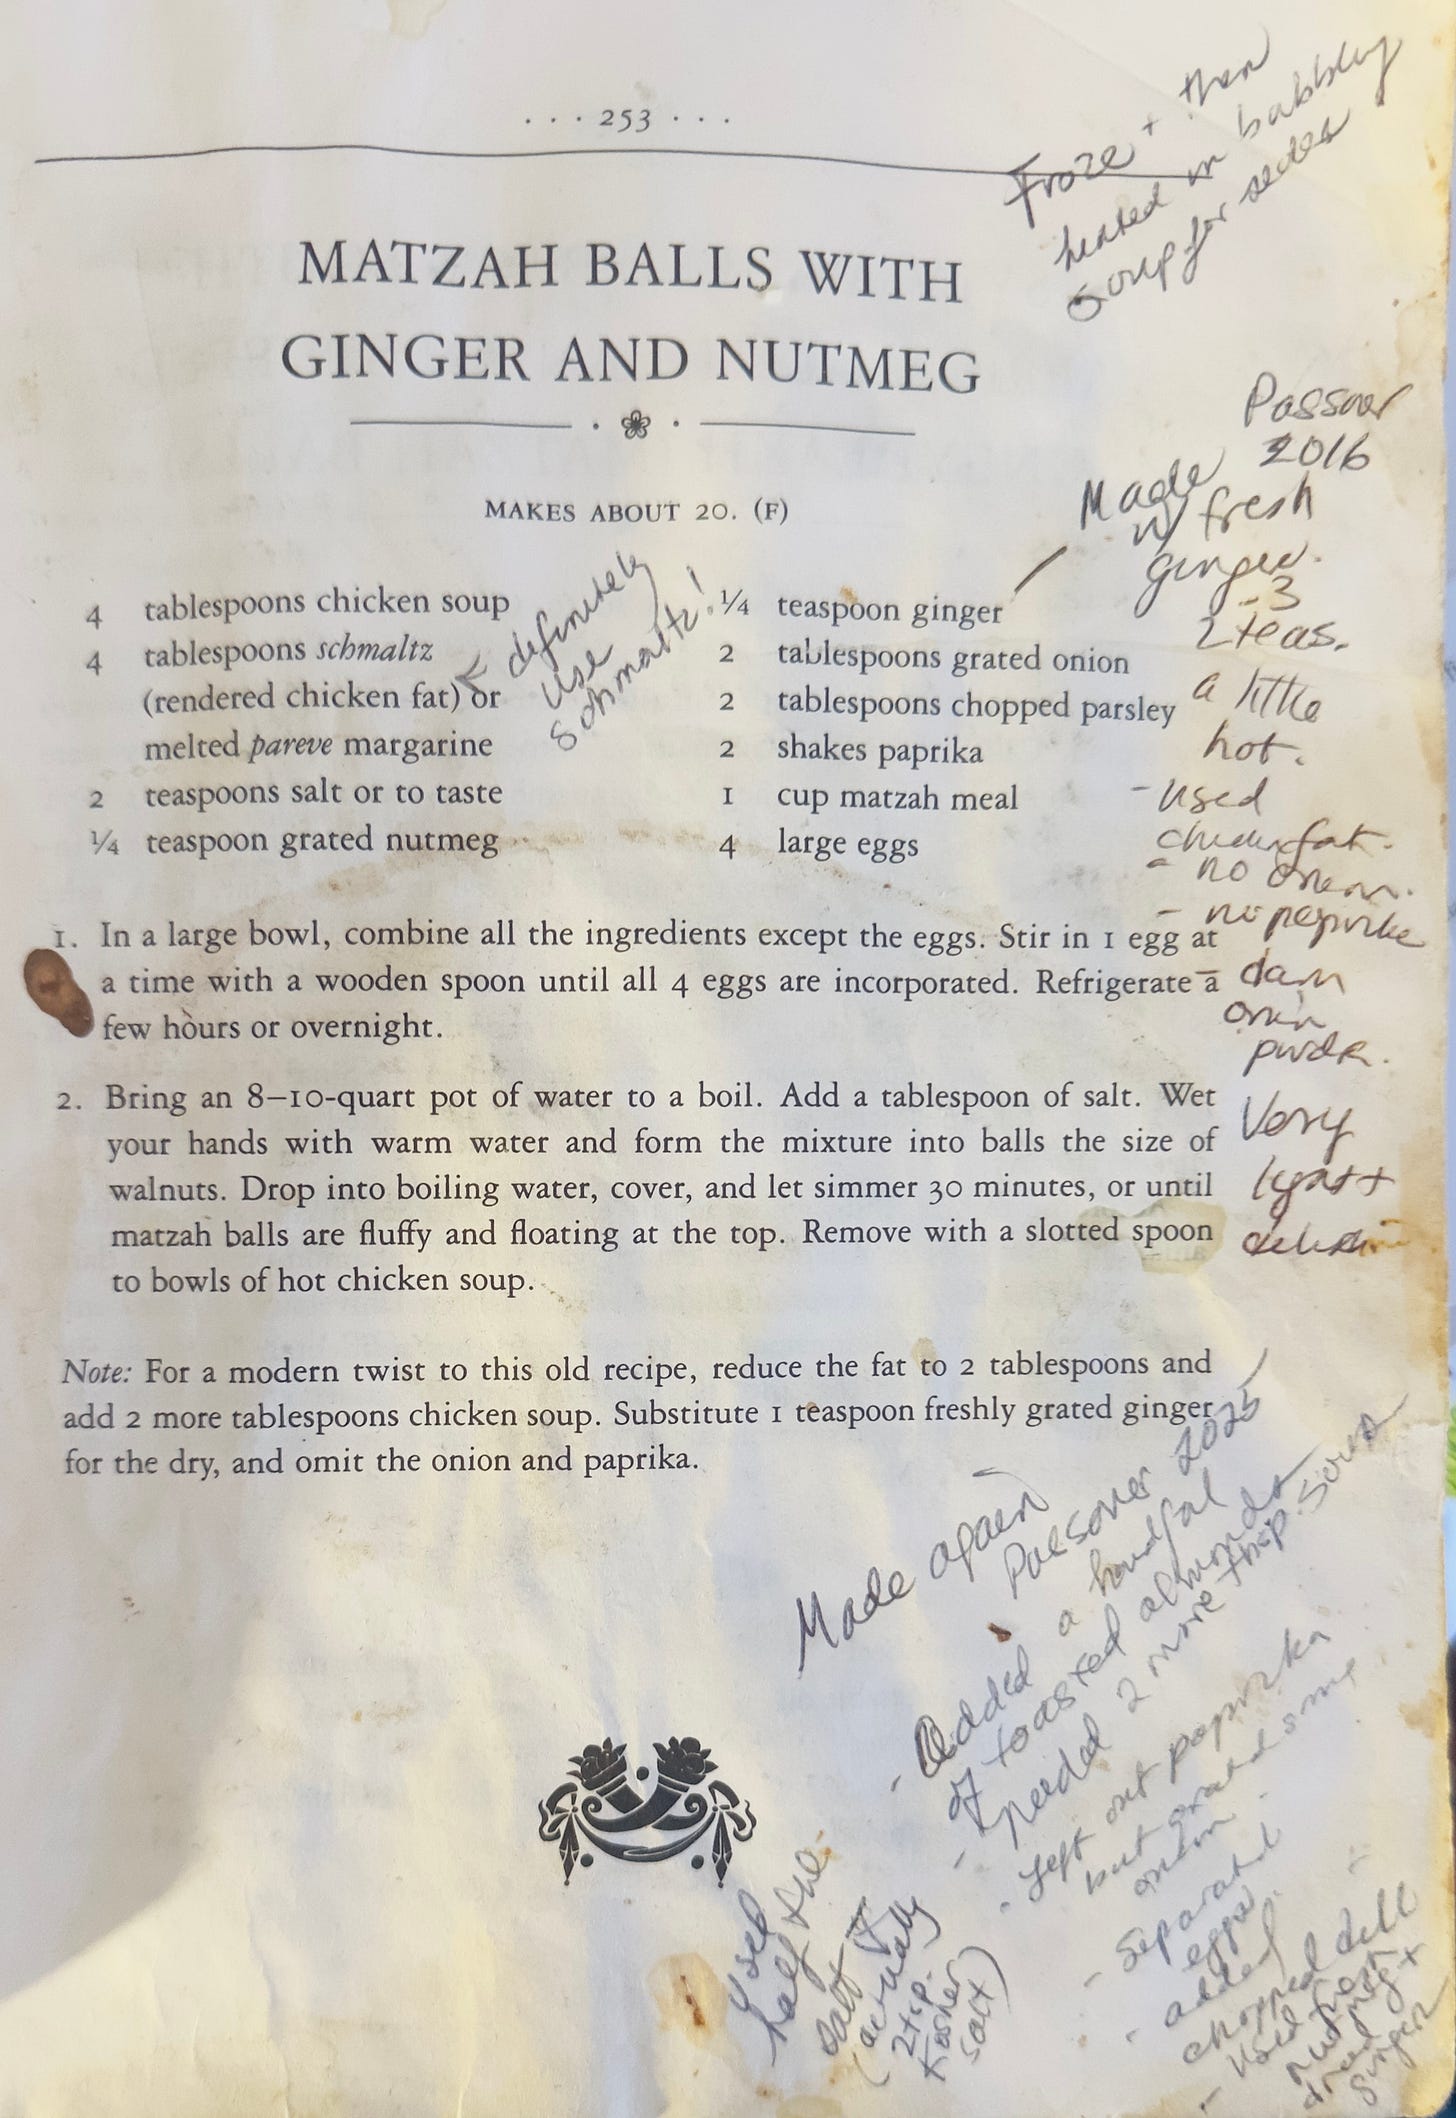 ... 253 ...
Froze + then
heated in bubbly
soup for seder
MATZAH BALLS WITH
GINGER AND NUTMEG
MAKES ABOUT 20. (F)
4 tablespoons chicken soup
4 tablespoons schmaltz
(rendered chicken fat) or
melted pareve margarine
2 teaspoons salt or to taste
¼ teaspoon grated nutmeg
← definitely
use
schmaltz!
¼ teaspoon ginger
2 tablespoons grated onion
2 tablespoons chopped parsley
2 shakes paprika
1 cup matzah meal
4 large eggs
Passover
2016
Made
w/ fresh
ginger.
- 3
2 teas.
a little
hot.
- Used
chicken fat.
- no onion.
- no paprika
onion
pwdr.
Very
light +
delicious
1. In a large bowl, combine all the ingredients except the eggs. Stir in 1 egg at
a time with a wooden spoon until all 4 eggs are incorporated. Refrigerate a
few hours or overnight.
2. Bring an 8–10-quart pot of water to a boil. Add a tablespoon of salt. Wet
your hands with warm water and form the mixture into balls the size of
walnuts. Drop into boiling water, cover, and let simmer 30 minutes, or until
matzah balls are fluffy and floating at the top. Remove with a slotted spoon
to bowls of hot chicken soup.
Note: For a modern twist to this old recipe, reduce the fat to 2 tablespoons and
add 2 more tablespoons chicken soup. Substitute 1 teaspoon freshly grated ginger
for the dry, and omit the onion and paprika.
Made again
Passover 2025
- Added a handful
of toasted almonds
- needed 2 more tbsp. soup
- Left out paprika
but grated some
onion.
- Separated
eggs.
- added
chopped dill
- Used fresh
nutmeg +
dried
ginger
Used
half the
salt
(actually
2 tsp.
Kosher
salt)